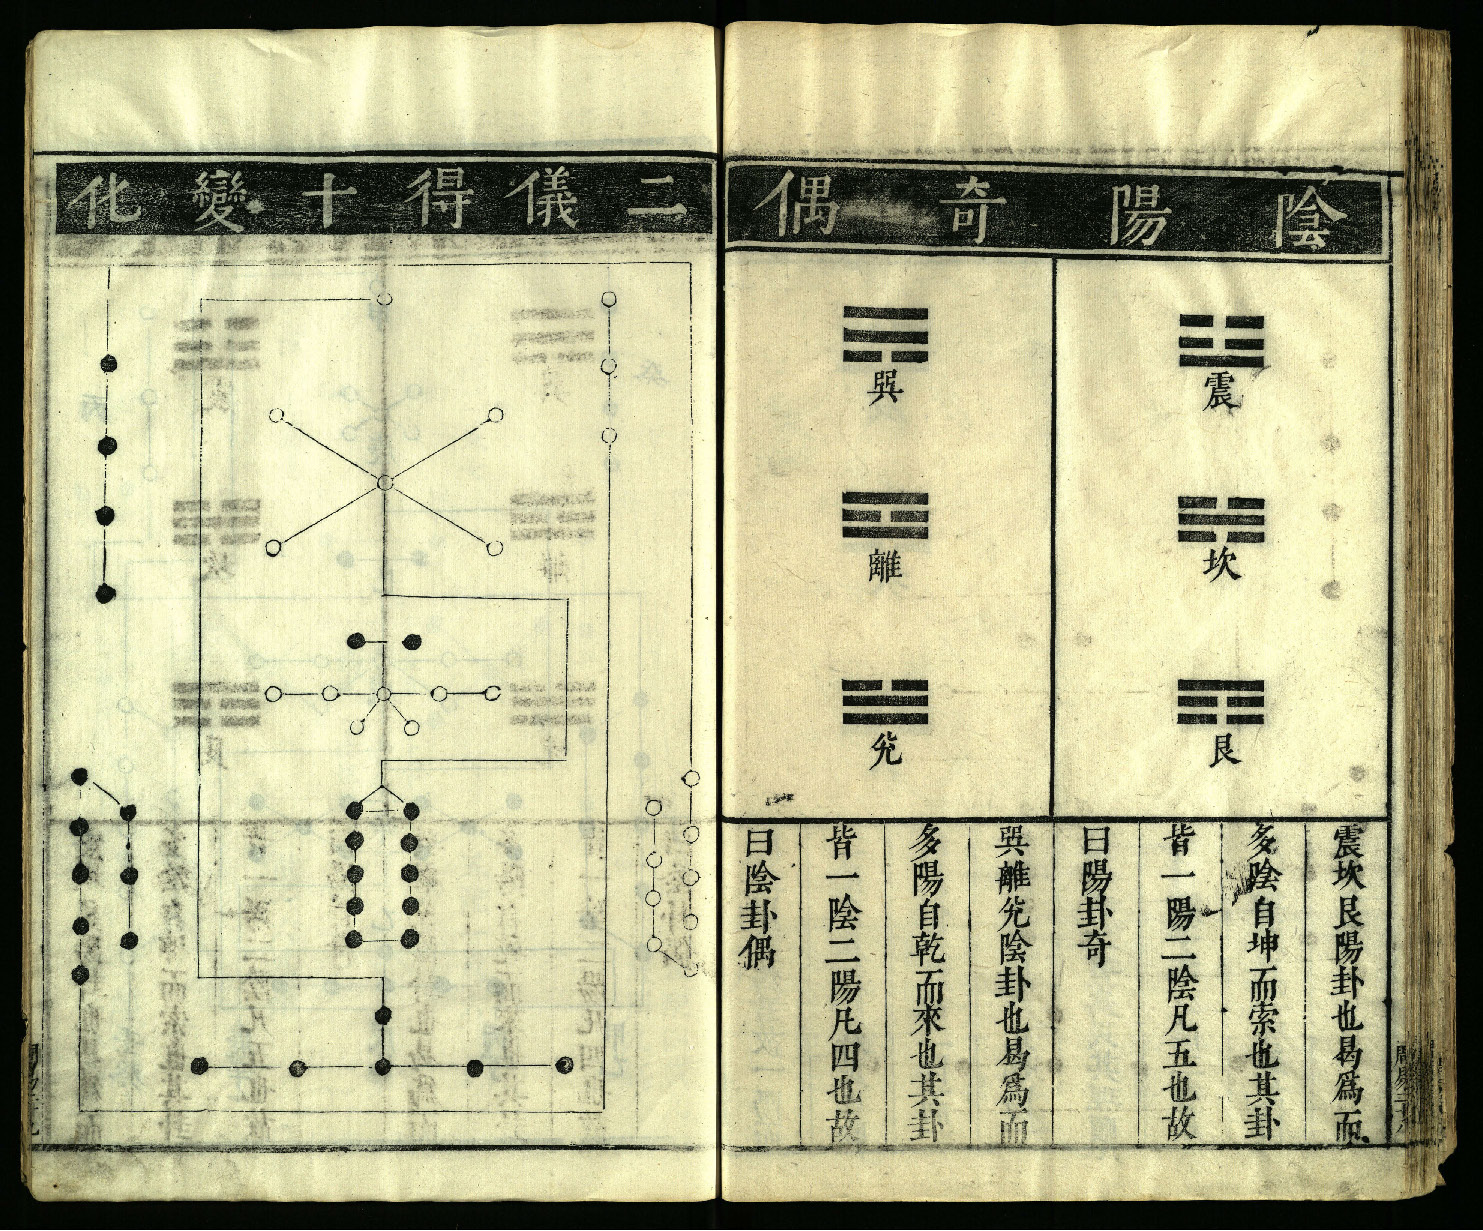 陰陽奇偶
震
坎
艮
巽
離
兊
震坎艮陽卦也曷為而
多陰自坤而索也其卦
皆一陽二陰凡五也故
曰陽卦奇
巽離兊陰卦也曷為而
多陽自乾而來也其卦
皆一陰二陽凡四也故
曰陰卦偶
二儀得十變化